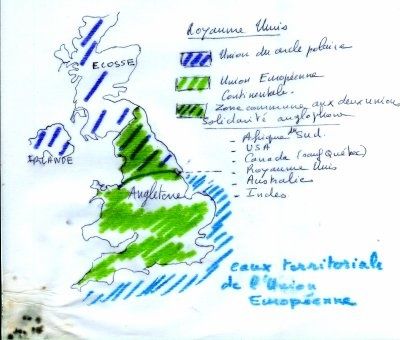 Royaume Unis
Union du cercle polaire
Union Européenne
Continentale
Zone commune aux deux unions
Solidarité anglophone
- Afrique du Sud.
- USA
- Canada (sauf Québec)
- Royaume Unis
- Australie
- Indes
ECOSSE
IRLANDE
Angleterre
eaux territoriale
de l'Union
Européenne